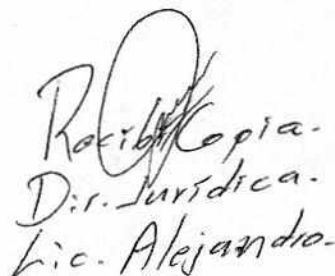 Recibí Copia.
Dir. Jurídica.
Lic. Alejandro.